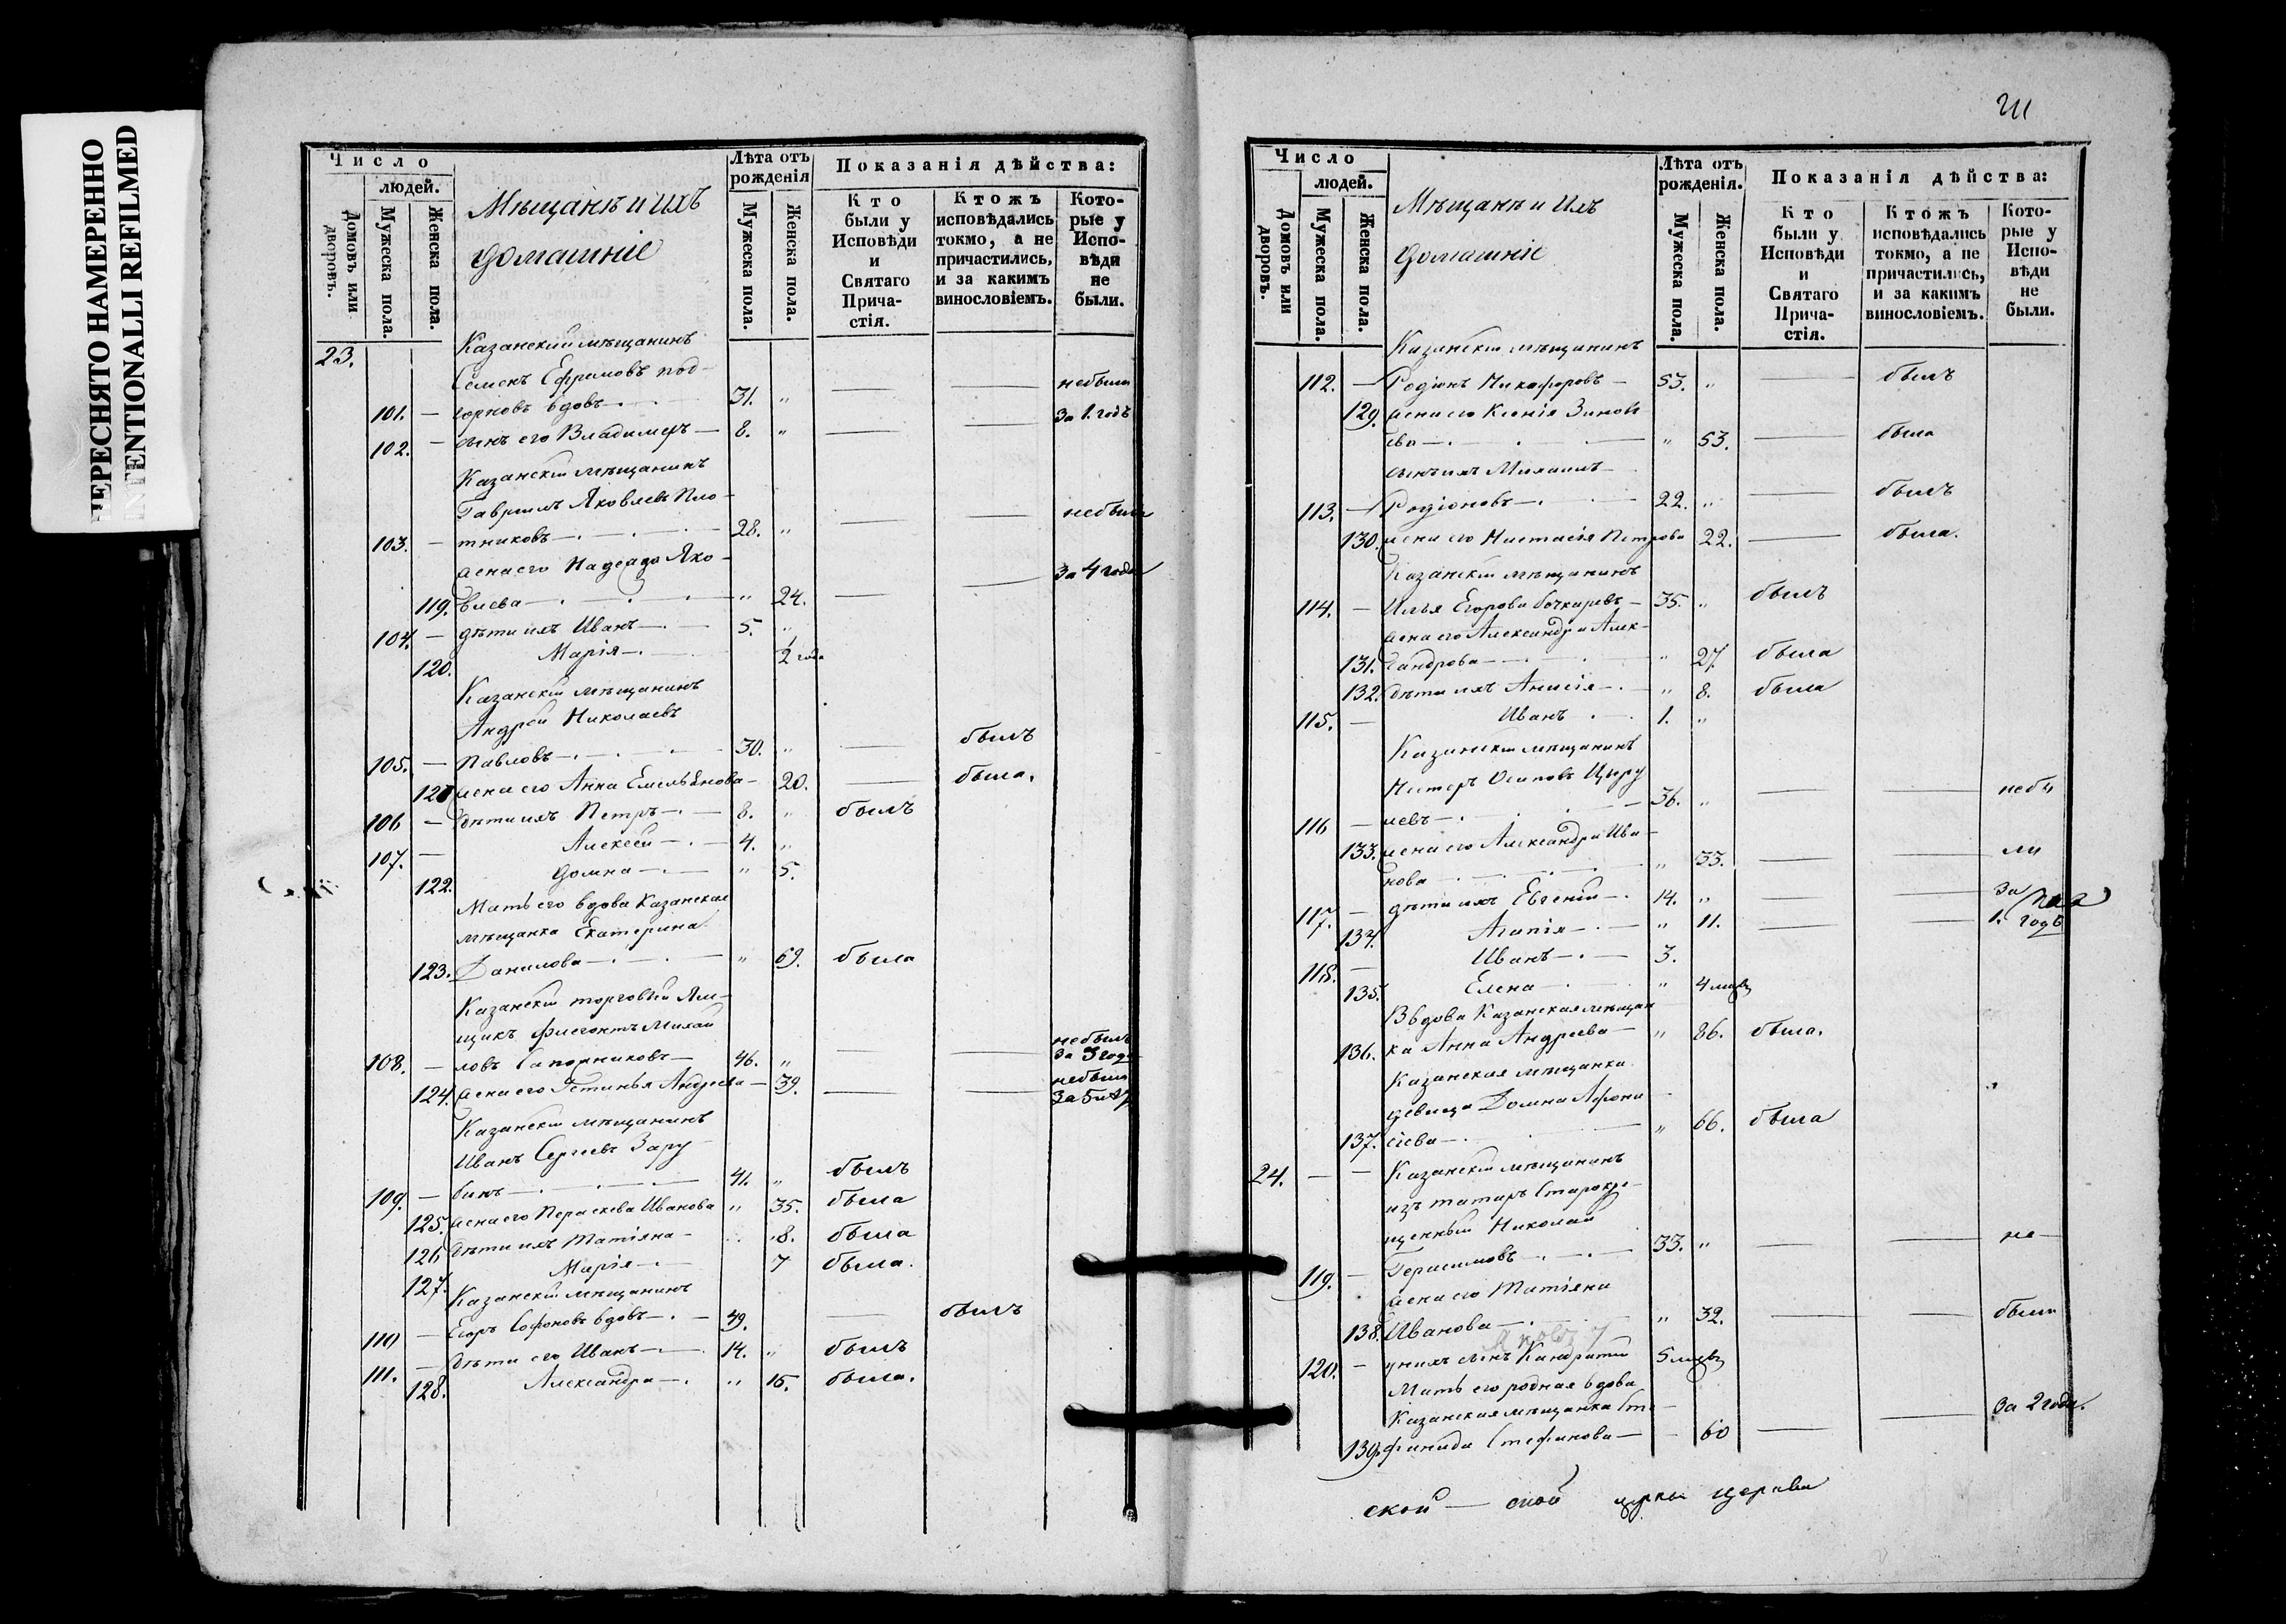 ПЕРЕСНЯТО НАМЕРЕННО
INTENTIONALLI REFILMED
Число
людей.
Домовъ или дворовъ.
Мужеска пола.
Женска пола.
Мѣщанѣ и ихъ
домашніе
Лѣта отъ рожденія
Мужеска пола.
Женска пола.
Показанія дѣйства:
Кто были у Исповѣди и Святаго Прича-стія.
Ктожъ исповѣдались токмо, а не причастились, и за какимъ винословіемъ.
Кото-рые у Испо-вѣди не были.
23.
Казанский мѣщанинъ
Семенъ Ефремовъ под-
101. — горновъ вдовъ — 31. „ — — небыли
102. — сынъ его Владимеръ — 8. „ — — За 1. годъ
Казанскій мѣщанинъ
Гавриилъ Яковлевъ Пло-
103. — тниковъ — 28. „ — — небыли
жена его Надежда Яко-
119. влева — „ 24. — — За 4 года
104. — дѣти ихъ Иванъ — 5. „
120. Марія — ½ года
Казанскій мѣщанинъ
Андрей Николаевъ
105. — Павловъ — 30. „ — былъ
121 жена его Анна Емельянова — 20. — была.
106 — дѣти ихъ Петръ — 8. „ былъ
107. — Алексей — 4. „
122. Домна — „ 5.
Мать его вдова Казанская
мѣщанка Екатерина
123. Данилова — „ 69. была
Казанскій торговый Ям-
щикъ Флегонтъ Михай
108. — ловъ Сапожниковъ — 46. „ — — небылъ За 3 года
124. жена его Устинья Андреева — 39. — — небыла За 5 лѣтъ
Казанскій мѣщанинъ
Иванъ Сергеевъ Зару
109. — бинъ — 41. „ былъ
125. жена его Пераскева Иванова „ 35. была
126 дѣти ихъ Татіяна — 8. была
127. Марія — 7 была.
Казанскій мѣщанинъ
110 — Егоръ Софоновъ вдовъ — 49. — былъ
111. — дѣти его Иванъ — 14. „ былъ
128. Александра — „ 15. была.
211
Число
людей.
Домовъ или дворовъ.
Мужеска пола.
Женска пола.
Мѣщанѣ и Ихъ
домашніе
Лѣта отъ рожденія.
Мужеска пола.
Женска пола.
Показанія дѣйства:
Кто были у Исповѣди и Святаго Прича-стія.
Ктожъ исповѣдались токмо, а не причастились, и за какимъ винословіемъ.
Кото-рые у Испо-вѣди не были.
Казанскій мѣщанинъ
112. — Родіонъ Никифоровъ — 53. „ — былъ
129. жена его Ксенія Зиновь
ева — „ 53. — была
сынъ ихъ Михаилъ
113. — Родіоновъ — 22. „ — былъ
130. жена его Настасія Петрова 22. — была.
Казанскій мѣщанинъ
114. — Илья Егоровъ Бочкаревъ — 35. „ былъ
жена его Александра Алек-
131. сандрова — „ 27 была
132. дѣти ихъ Анисія — „ 8. была
115. — Иванъ — 1. „
Казанскій мѣщанинъ
Нестеръ Осиповъ Цыру
116 — левъ — 36. „ — — небы
133. жена его Александра Ива-
нова — „ 33. — — ли
117. — дѣти ихъ Евгеній — 14. „ — — За
134. Агапія — „ 11. — — 1. годъ
118. — Иванъ — 3.
135. Елена — „ 4 мѣсяц
Вдова Казанская мѣщан
136. ка Анна Андреева — „ 86. была.
Казанская мѣщанка
девица Домна Афона
137. сіева — „ 66. была
24. — — Казанскій мѣщанинъ
изъ татаръ Старокре-
щенный Николай
119. — Герасимовъ — 33. „ — — не-
жена его Татіяна
138. Иванова — „ 32. — — были
120. — у нихъ сынъ Кандратій 5 мѣсяц
Мать его родная вдова
Казанская мѣщанка Сте-
139. фанида Стефанова — 60 — — За 2 года.
ской — ской церкви